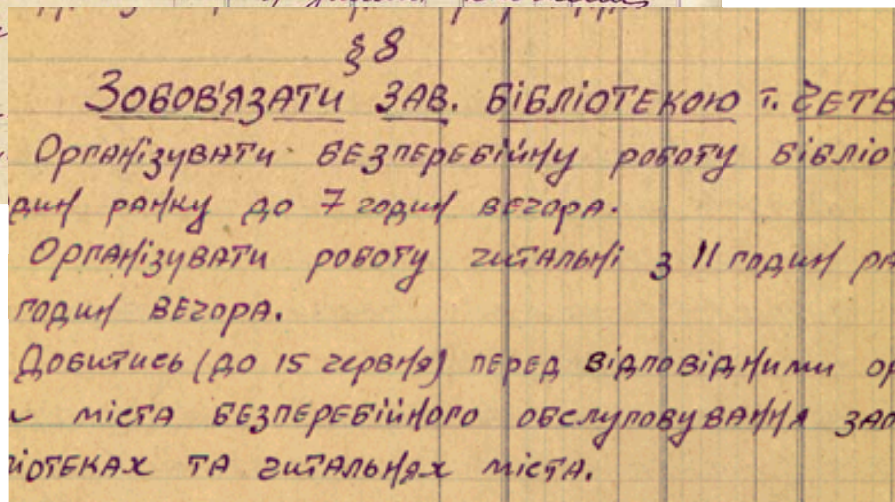 § 8
Зобов'язати зав. бібліотекою т. Чете
Організувати безперебійну роботу бібліо
дин ранку до 7 годин вечора.
Організувати роботу читальні з 11 годин ра
годин вечора.
Добитись (до 15 червня) перед відповідними ор
и міста безперебійного обслуговування зао
іотеках та читальнях міста.